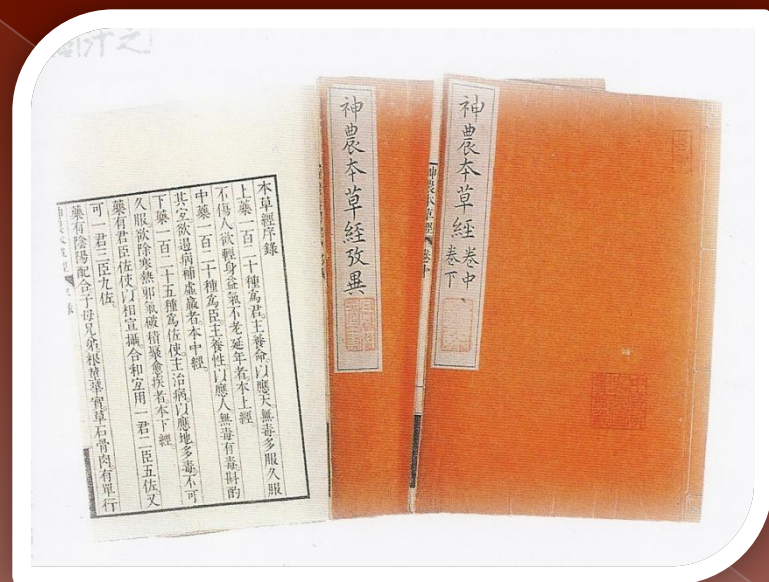 神農本草經 卷中、
卷下
神農本草經 卷中
神農本草經攷異
本草經序錄
上藥一百二十種爲君主養命以應天無毒多服久服
不傷人欲輕身益氣不老延年者本上經
中藥一百二十種爲臣主養性以應人無毒有毒斟酌
其宐欲遏病補虛羸者本中經
下藥一百二十五種爲佐使主治病以應地多毒不可
久服欲除寒熱邪氣破積聚愈疾者本下經
藥有君臣佐使以相宣攝合和宐用一君二臣五佐又
可一君三臣九佐
藥有陰陽配合子母兄弟根莖華實草石骨肉有單行
神農本草經